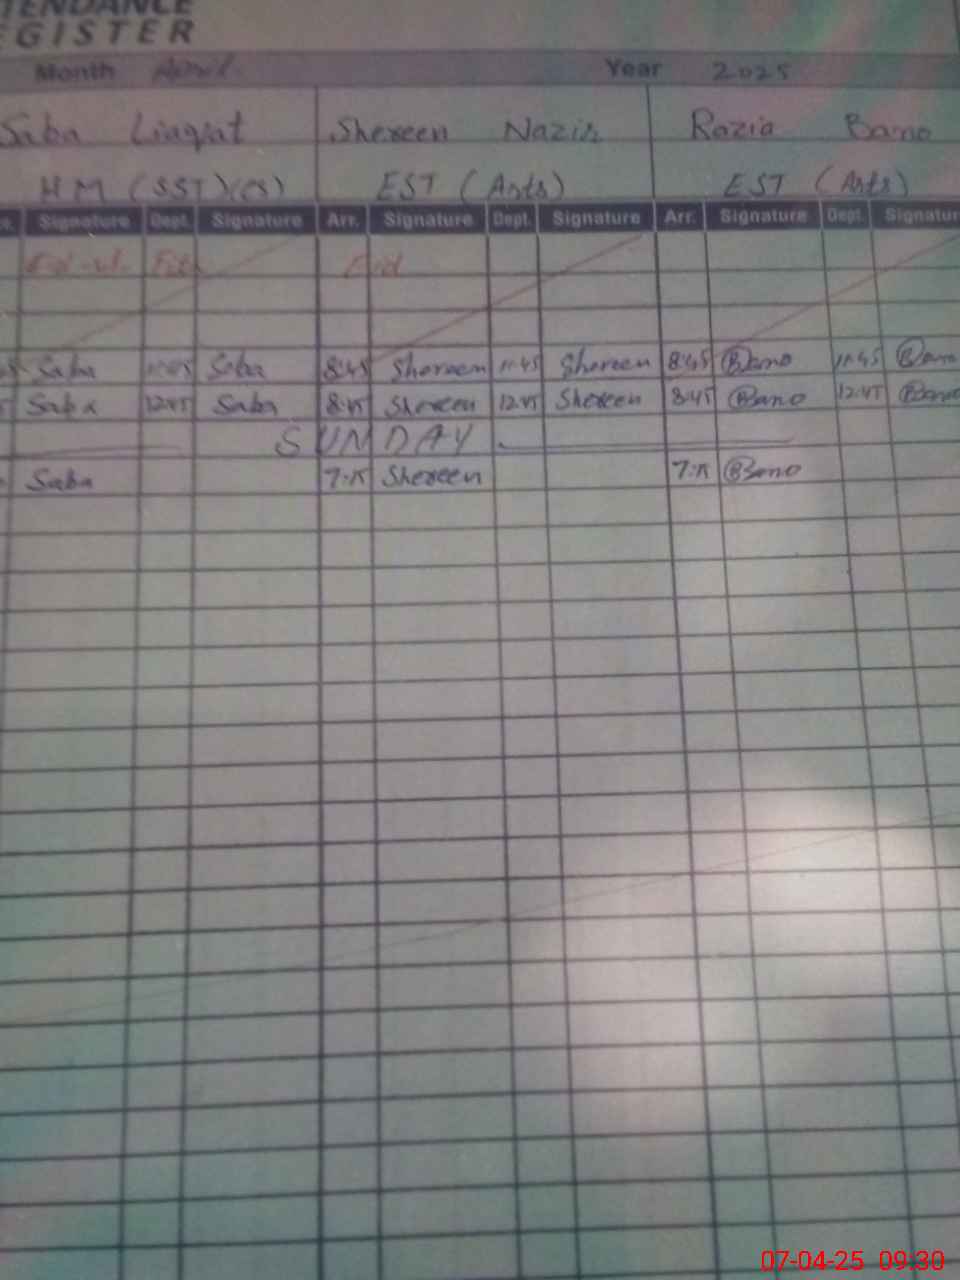 TENDANCE
EGISTER
Month April Year 2025
Saba Liaqat Shereen Nazir Razia Bano
HM (SST)(CS) EST (Arts) EST (Arts)
Signature Dept. Signature Arr. Signature Dept. Signature Arr. Signature Dept. Signatur
Eid-ul- Fitr Eid
Saba Saba 8:45 Shereen 11:45 Shereen 8:45 Bano 11:45 Bano
Saba 12:45 Saba 8:45 Shereen 12:45 Shereen 8:45 Bano 12:45 Bano
SUNDAY
Saba 7:15 Shereen 7:15 Bano
07-04-25 09:30